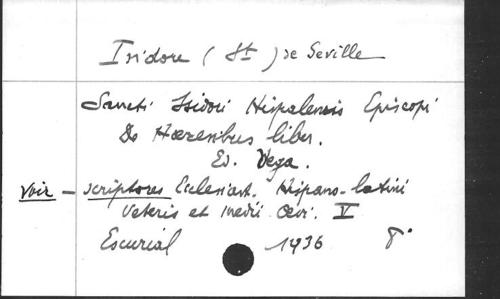 Isidore (St) de Seville
Sancti Isidori Hispalensis Episcopi
De Haeresibus liber.
Ed. Vega.
voir — scriptores Ecclesiast. Hispano-latini
Veteris et medii aevi. V
Escurial 1936 8°